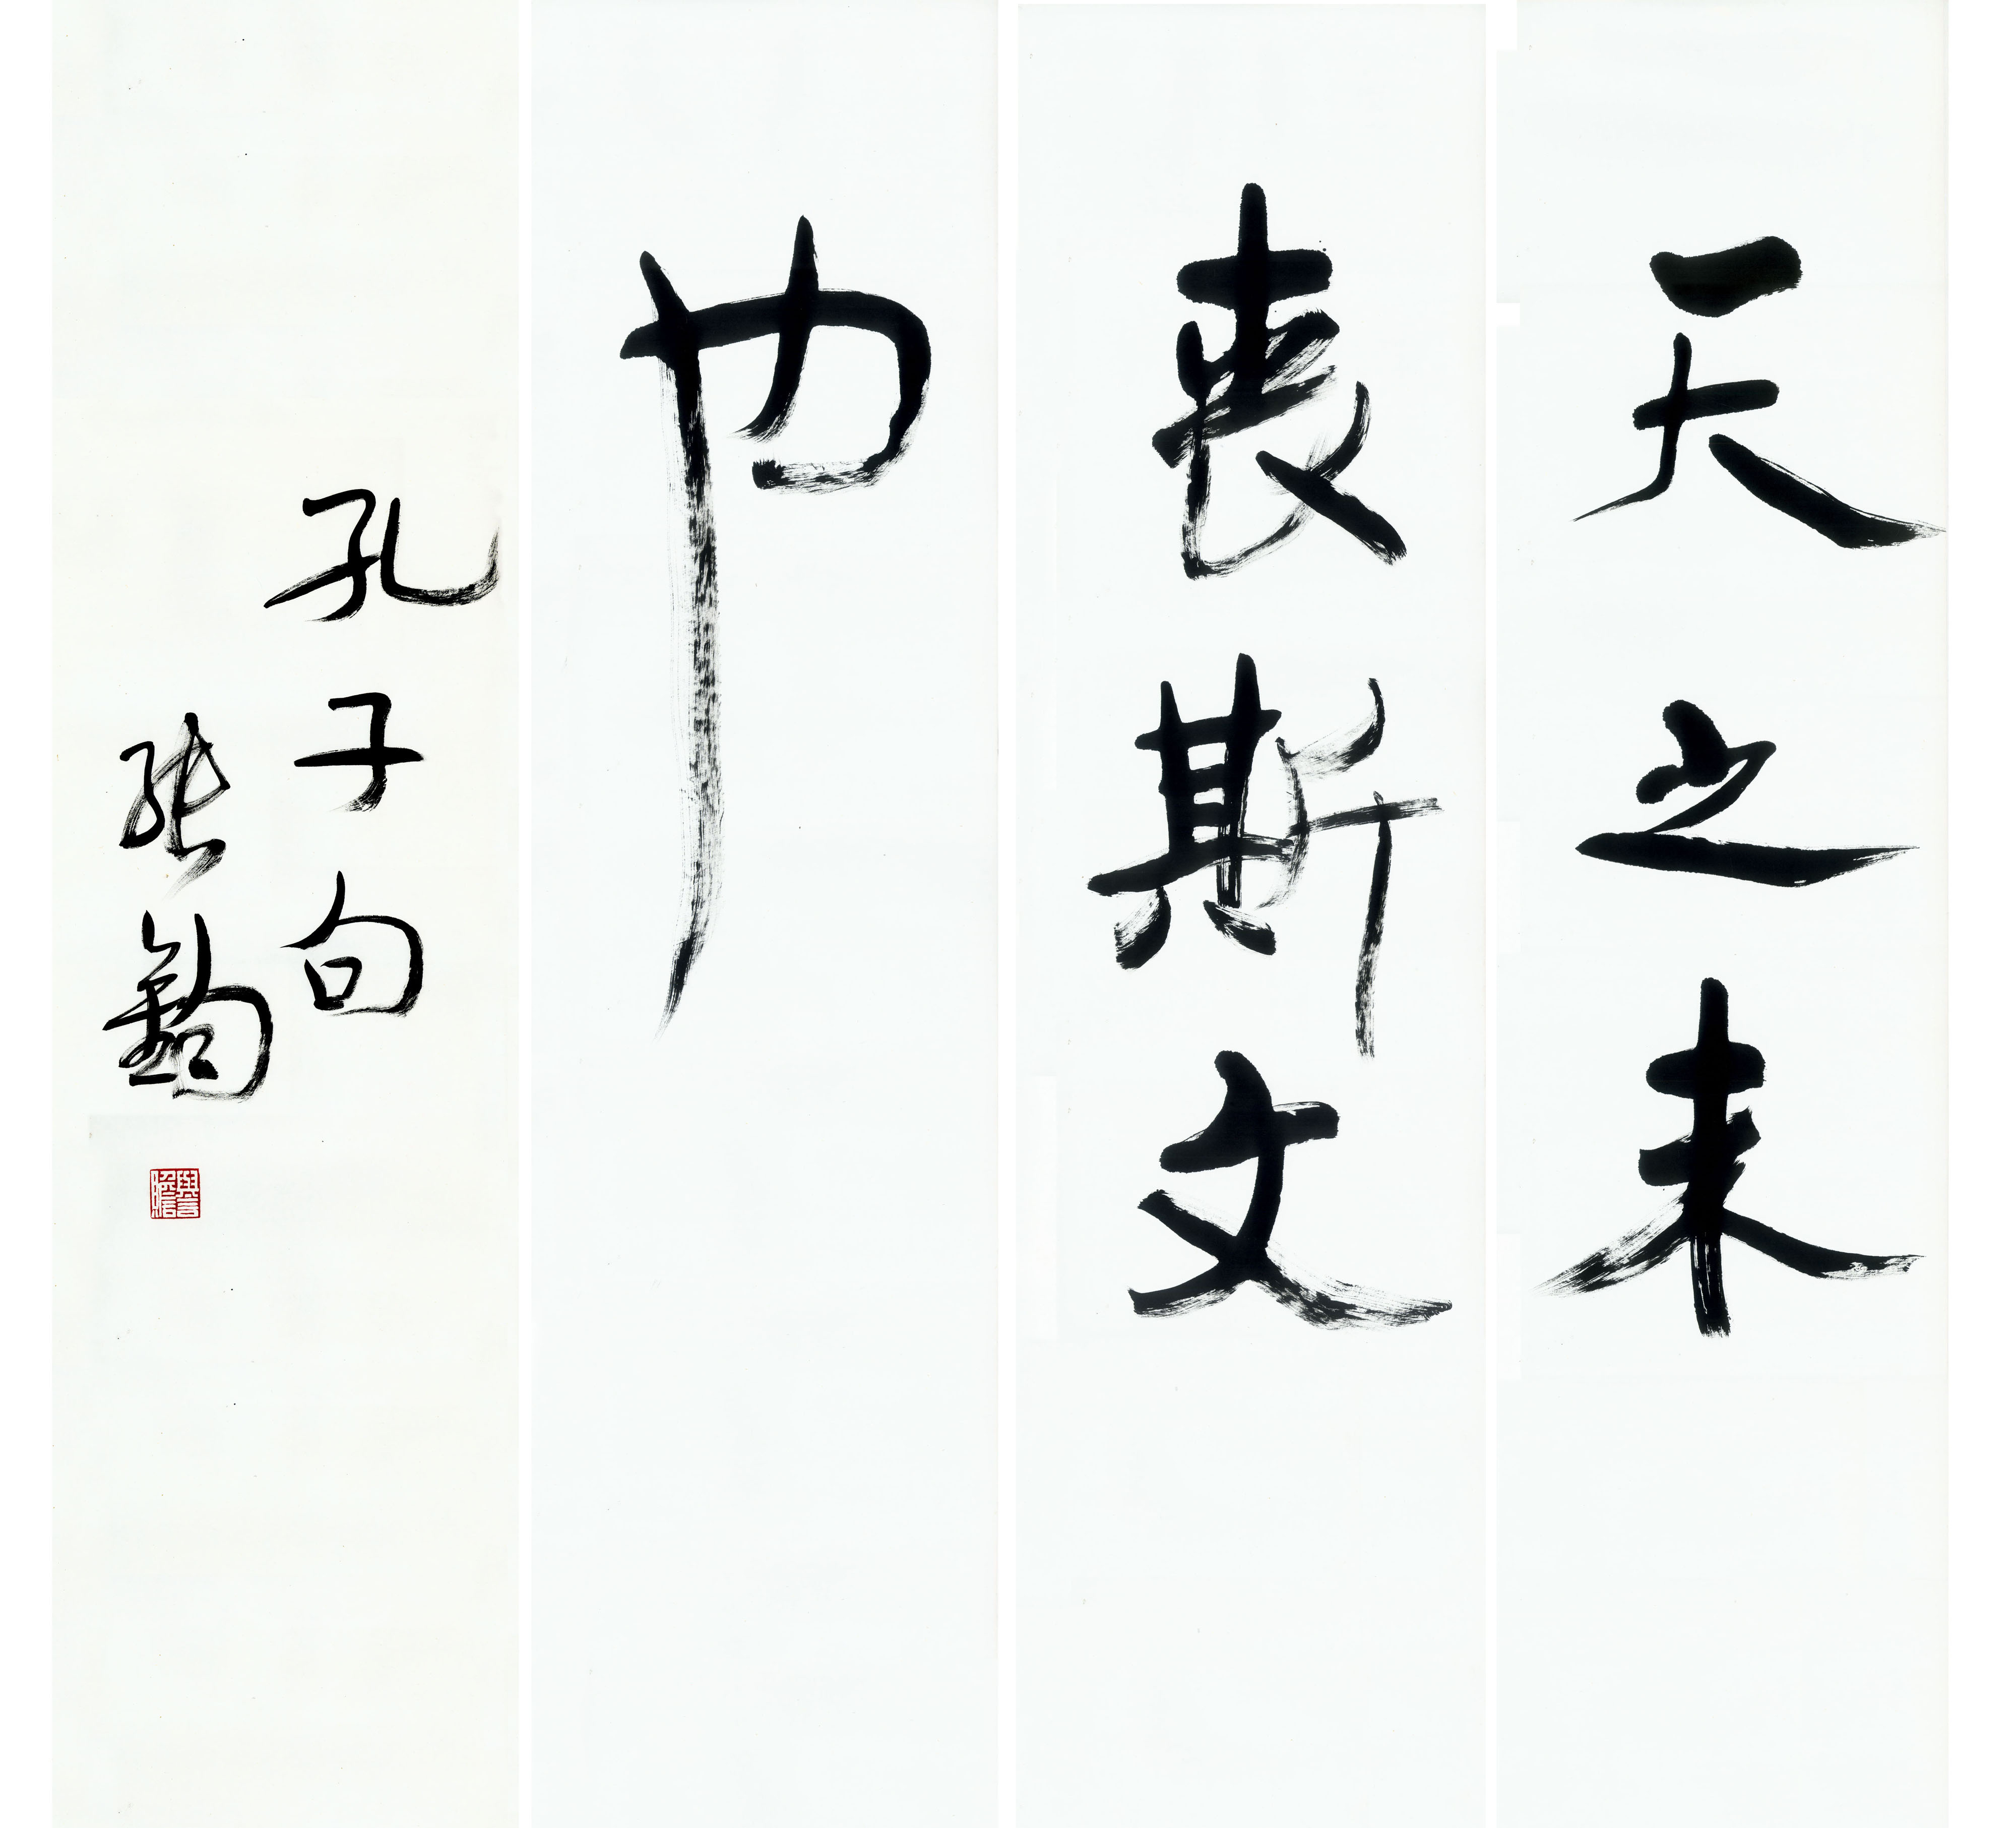 天之未
喪斯文
也
孔子句
张